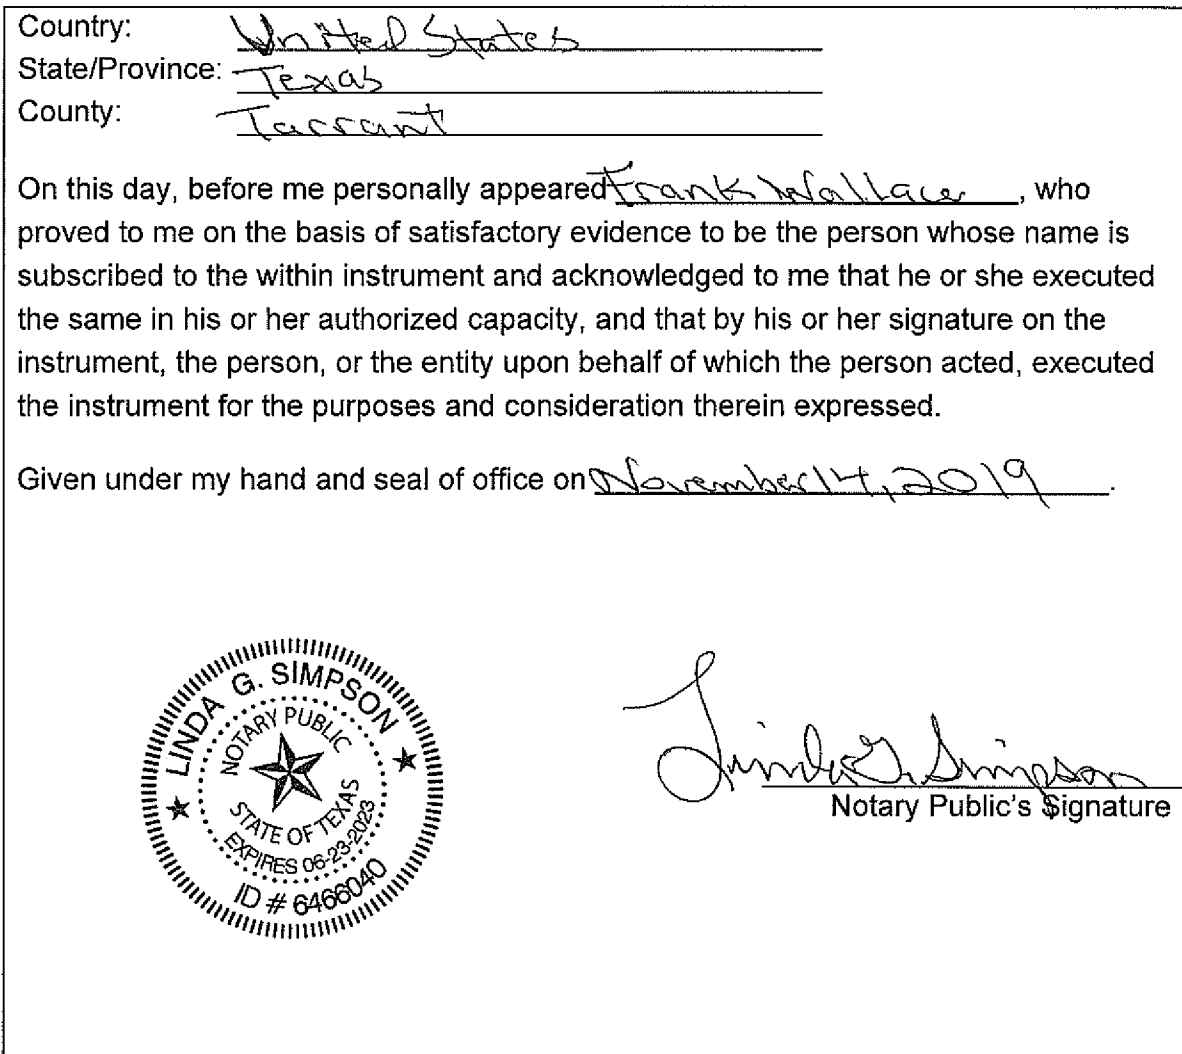 Country: United States
State/Province: Texas
County: Tarrant
On this day, before me personally appeared Frank Wallace, who
proved to me on the basis of satisfactory evidence to be the person whose name is
subscribed to the within instrument and acknowledged to me that he or she executed
the same in his or her authorized capacity, and that by his or her signature on the
instrument, the person, or the entity upon behalf of which the person acted, executed
the instrument for the purposes and consideration therein expressed.
Given under my hand and seal of office on November 14, 2019.
LINDA G. SIMPSON
NOTARY PUBLIC
STATE OF TEXAS
EXPIRES 06-23-2023
ID # 6466040
Linda G. Simpson
Notary Public's Signature